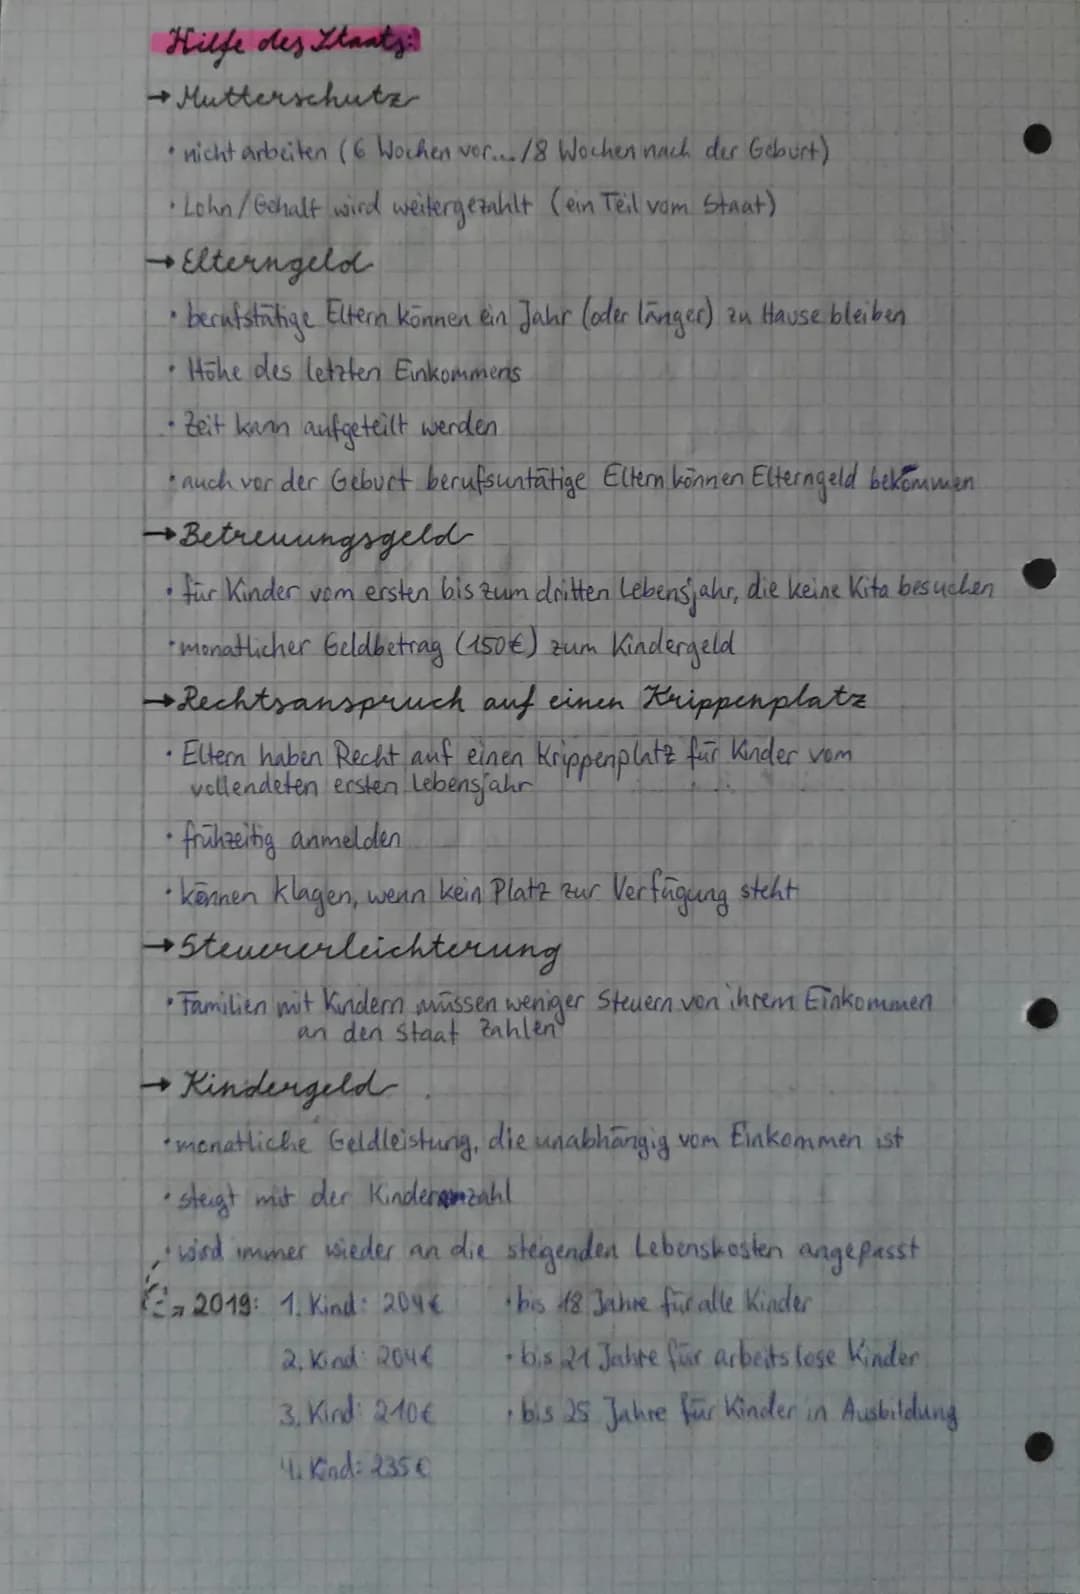 Hilfe des Staats:
→ Mutterschutz
• nicht arbeiten (6 Wochen vor.../8 Wochen nach der Geburt)
• Lohn/Gehalt wird weitergezahlt (ein Teil vom Staat)
→ Elterngeld
• berufstätige Eltern können ein Jahr (oder länger) zu Hause bleiben
• Höhe des letzten Einkommens
• Zeit kann aufgeteilt werden
• auch vor der Geburt berufsuntätige Eltern können Elterngeld bekommen
→ Betreuungsgeld
• für Kinder vom ersten bis zum dritten Lebensjahr, die keine Kita besuchen
• monatlicher Geldbetrag (150€) zum Kindergeld
→ Rechtsanspruch auf einen Krippenplatz
• Eltern haben Recht auf einen Krippenplatz für Kinder vom
vollendeten ersten Lebensjahr
• frühzeitig anmelden
• können klagen, wenn kein Platz zur Verfügung steht
→ Steuererleichterung
• Familien mit Kindern müssen weniger Steuern von ihrem Einkommen
an den Staat zahlen
→ Kindergeld
• monatliche Geldleistung, die unabhängig vom Einkommen ist
• steigt mit der Kinderanzahl
• wird immer wieder an die steigenden Lebenskosten angepasst
→ 2019: 1. Kind: 204€ • bis 18 Jahre für alle Kinder
2. Kind: 204€ • bis 21 Jahre für arbeitslose Kinder
3. Kind: 210€ • bis 25 Jahre für Kinder in Ausbildung
4. Kind: 235€